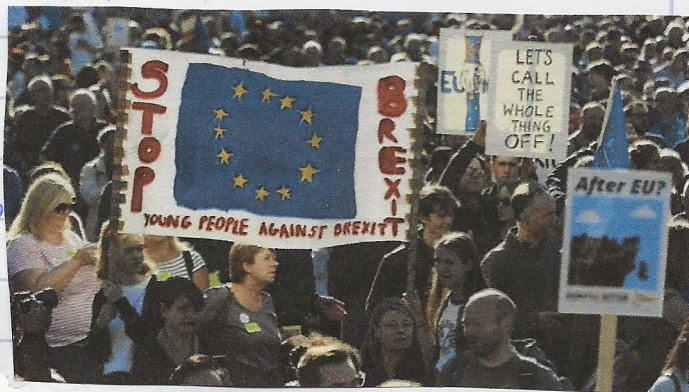 STOP
BREXIT
YOUNG PEOPLE AGAINST BREXITT
EU
LET'S
CALL
THE
WHOLE
THING
OFF!
After EU?